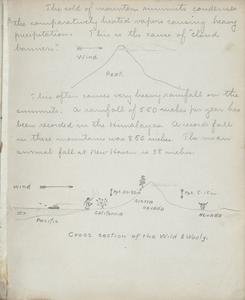 The cold of mountain summits condenses
the comparatively heated vapors causing heavy
precipitation. This is the cause of "cloud
banners."
Wind
Peak
This often causes very heavy rainfall on the
summits. A rainfall of 550 inches per year has
been recorded in the Himalayas. A record fall
in these mountains was 856 inches. The mean
annual fall at New Haven is 55 inches.
Wind
Pacific
California
Sierra
Nevada
Nevada
Cross section of the Wild & Wooly.